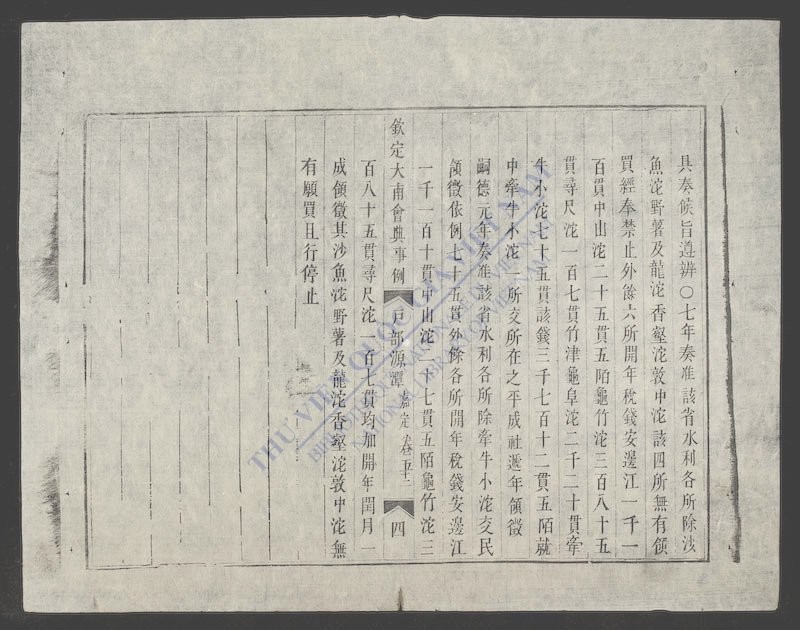 具奏候旨遵辨○七年奏准該省水利各所除沙
魚沱野薯及龍沱香壑沱敦中沱該四所無有領
買經奉禁止外餘六所開年稅錢安邊江一千一
百貫中山沱二十五貫五陌龜竹沱三百八十五
貫尋尺沱一百七貫竹津龜阜沱二千二十貫牽
牛小沱七十五貫該錢三千七百十二貫五陌就
中牽牛小沱一所交所在之平成社遞年領徵
嗣德元年奏准該省水利各所除牽牛小沱交民
領徵依例七十五貫外餘各所開年稅錢安邊江
一千一百十貫中山沱二十七貫五陌龜竹沱三
欽定大南會典事例 戶部源潭 嘉定 卷五十二 四
百八十五貫尋尺沱一百七貫均加開年閏月一
成領徵其沙魚沱野薯及龍沱香壑沱敦中沱無
有願買且行停止
THƯ VIỆN QUỐC GIA VIỆT NAM
BIBLIOTHÈQUE NATIONALE DU VIETNAM
NATIONAL LIBRARY OF VIETNAM